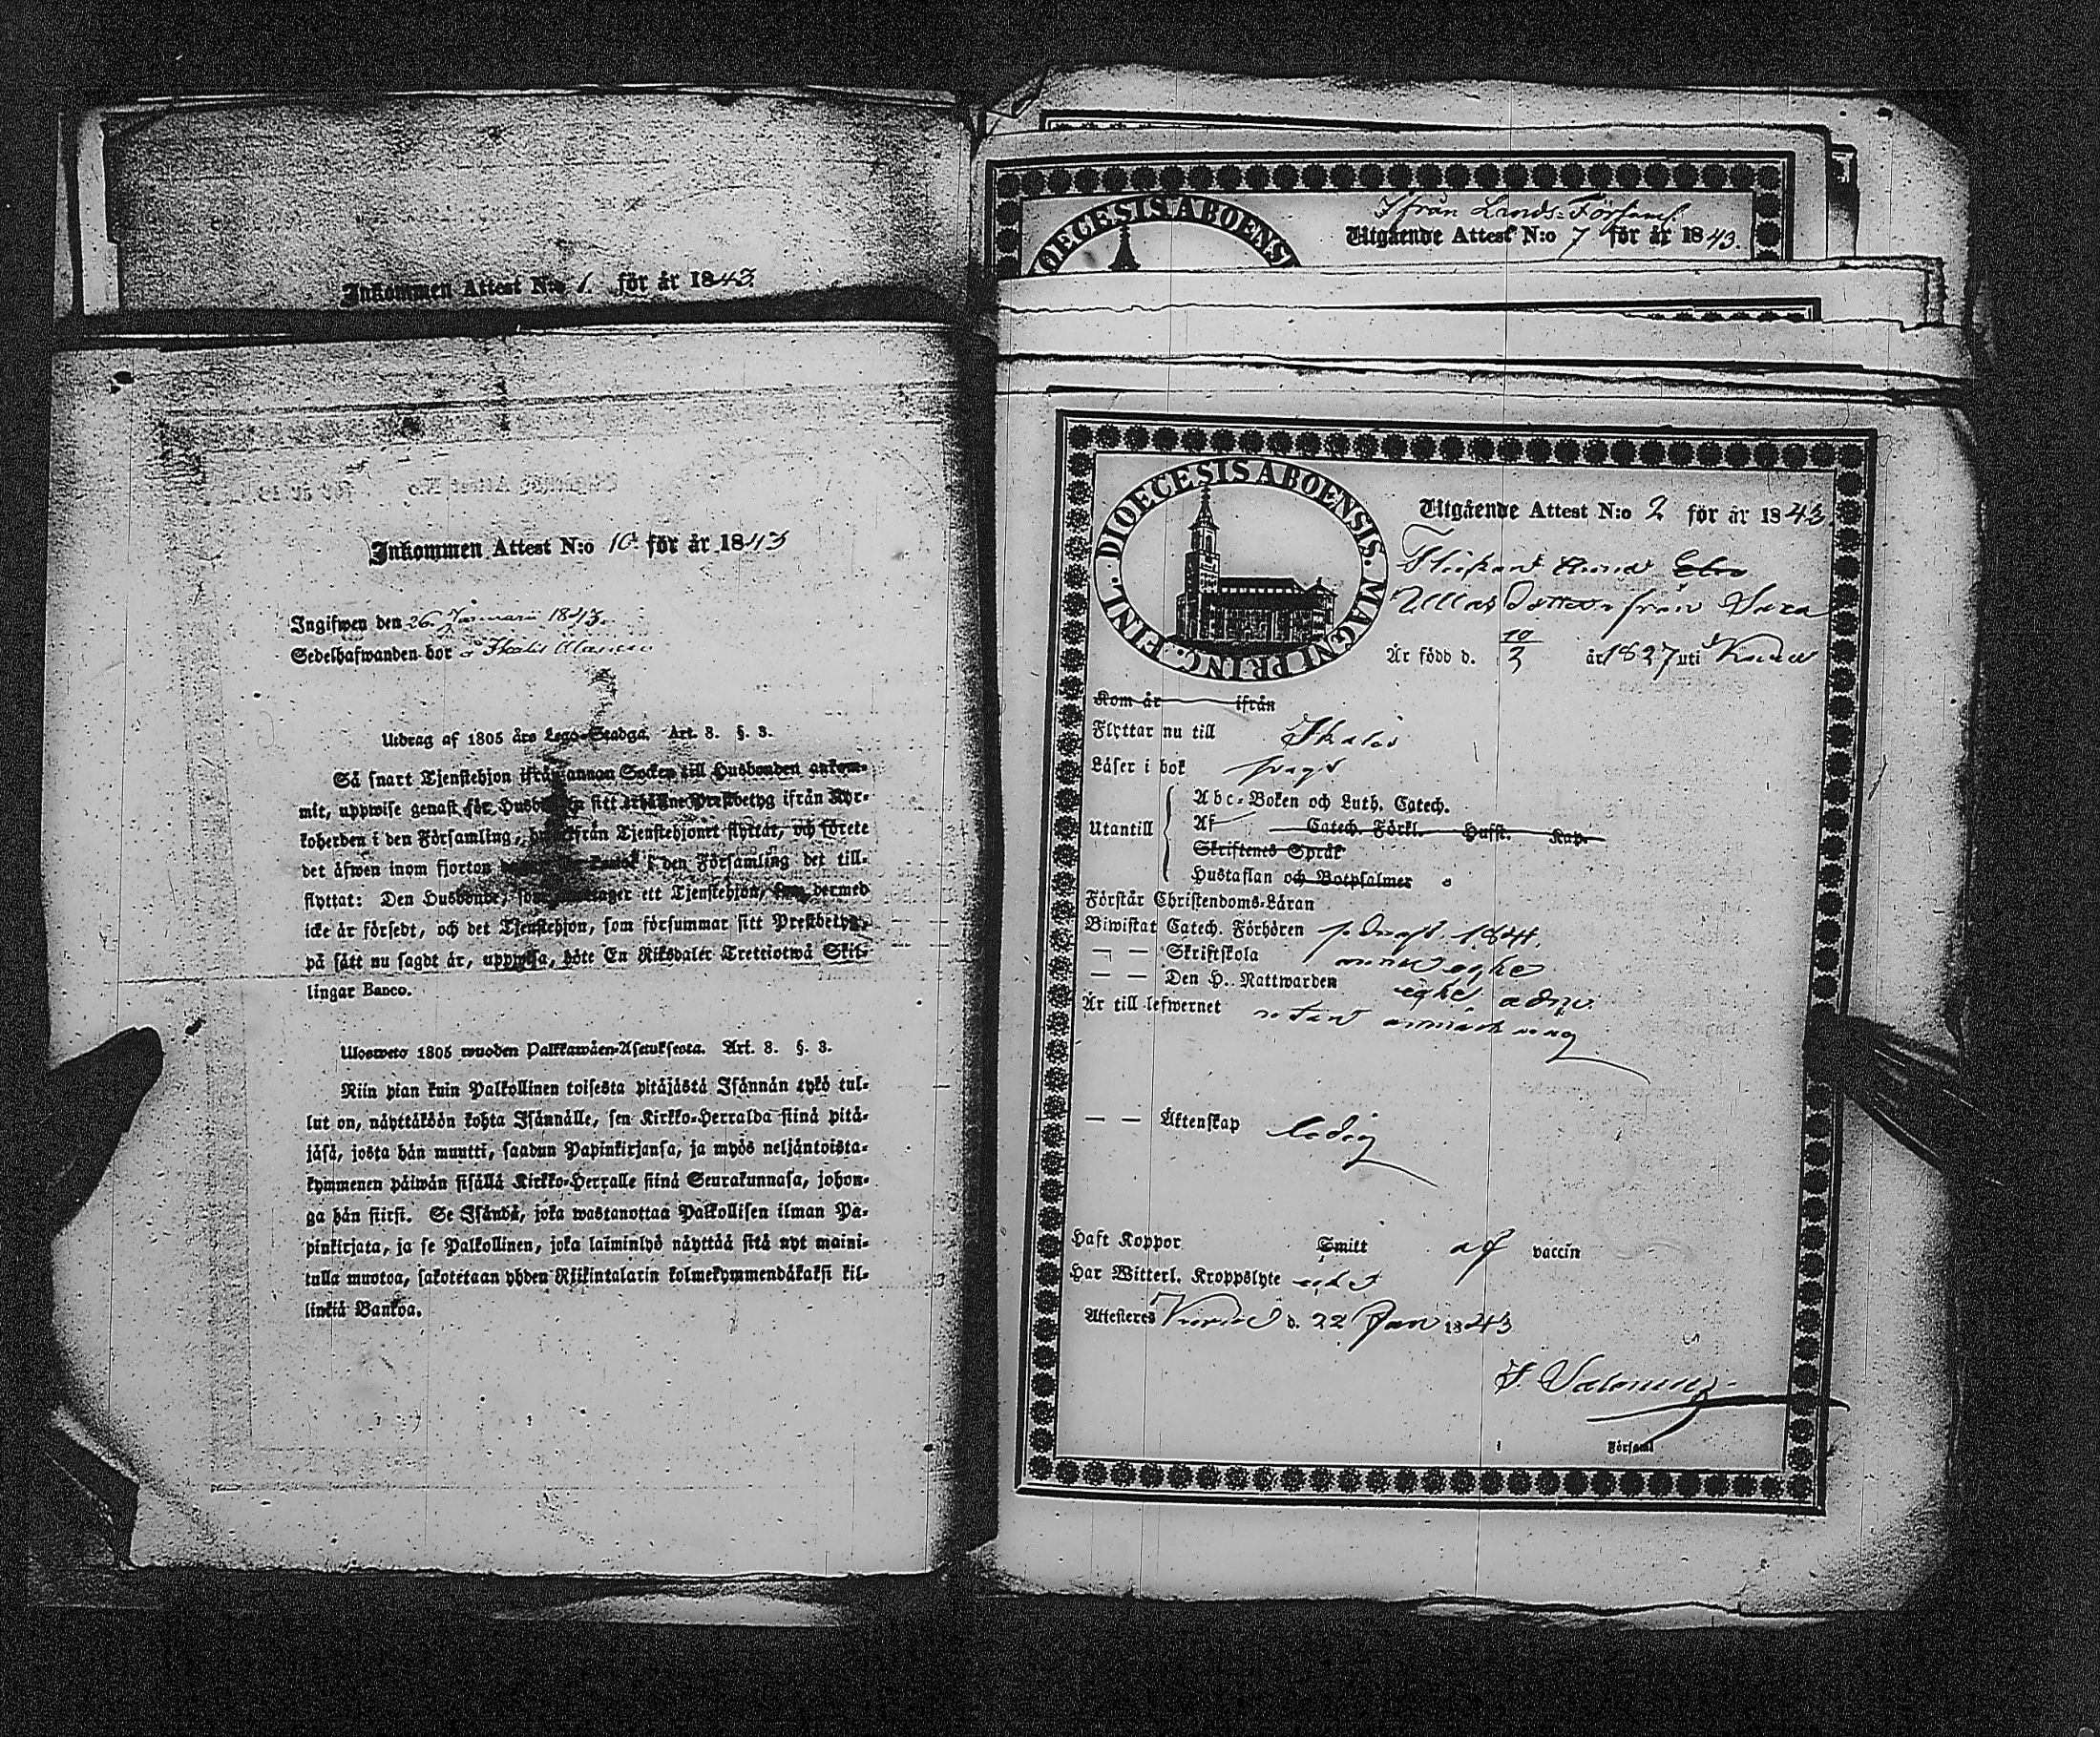 Inkommen Attest N:o 1. för år 1843.
Inkommen Attest N:o 10. för år 1843
Ingifwen den 26. Januarii 1843.
Sedelhafwanden bor
Utdrag af 1805 års Lego-Stadga. Art. 8. §. 3.
Så snart Tjenstehjon ifrån annan Socken till Husbonden ankom-
mit, uppwise genast för Husbonden sitt erhållne Prestbetyg ifrån Kyr-
koherden i den Församling, ifrån Tjenstehjonet flyttat, och förete
det äfwen inom fjorton i den Församling det till-
flyttat: Den Husbonde, som ett Tjenstehjon, dermed
icke är försedt, och det Tjenstehjon, som försummar sitt Prestbetyg,
på sätt nu sagdt är, uppwisa, böte En Riksdaler Trettiotwå Skil-
lingar Banco.
Ulosweto 1805 wuoden Palkkawäen-Asetuksesta. Art. 8. §. 3.
Niin pian kuin Palkollinen toisesta pitäjästä Isännän tykö tul-
lut on, näyttäköön kohta Isännälle, sen Kirkko-Herralda siinä pitä-
jäsä, josta hän muutti, saadun Papinkirjansa, ja myös neljäntoista-
kymmenen päiwän sisällä Kirkko-Herralle siinä Seurakunnasa, johon-
ga hän siirsi. Se Isändä, joka wastanottaa Palkollisen ilman Pa-
pinkirjata, ja se Palkollinen, joka laiminlyö näyttää sitä nyt maini-
tulla muotoa, sakotetaan yhden Riikintalarin kolmekymmendäkaksi kil-
linkiä Bankoa.
DIOECESIS ABOENSI
Ifrån Lands-Församl.
Utgående Attest N:o 7 för år 1843.
DIOECESIS ABOENSIS. MAGNI PRINC. FINL.
Utgående Attest N:o 2 för år 1843.
Flickan
från
Är född d. 10/3 år 1827 uti
Kom år ifrån
Flyttar nu till Ikalis
Läser i bok svagt
Utantill
Abc-Boken och Luth. Catech.
Af Catech. Förkl. Hust. Kap.
Skriftenes Språk
Hustaflan och Botpsalmer
Förstår Christendoms-Läran
Biwistat Catech. Förhören
— — Skriftskola
— — Den H. Nattwarden
Är till lefwernet utan anmärkning
— — Äktenskap ledig
Haft Koppor Smitt af vaccin
Har Witterl. Kroppslyte
Attesteres d. 22 Jan 1843
Församl